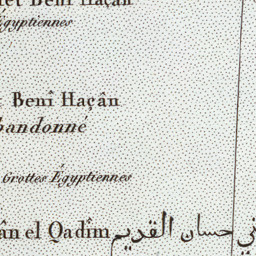 Benî Haçân
Égyptiennes
Benî Haçân
abandonné
Grottes Égyptiennes
ân el Qadîm حسان القديم